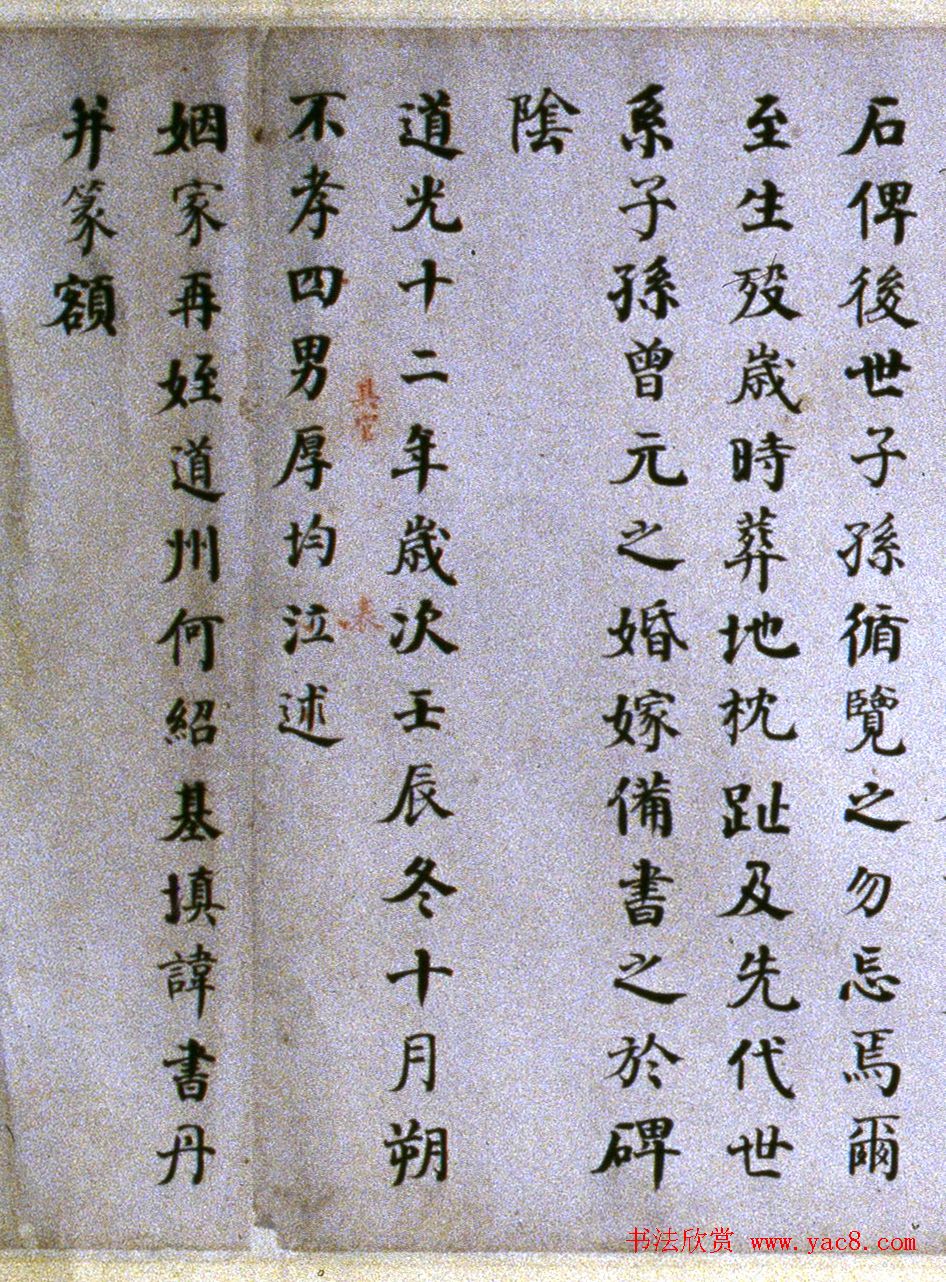 石俾後世子孫循覽之勿忘焉爾
至生歿歲時葬地枕趾及先代世
系子孫曾元之婚嫁備書之於碑
陰
道光十二年歲次壬辰冬十月朔
不孝四男厚均泣述
姻家再姪道州何紹基填諱書丹
并篆額
书法欣赏 www.yac8.com